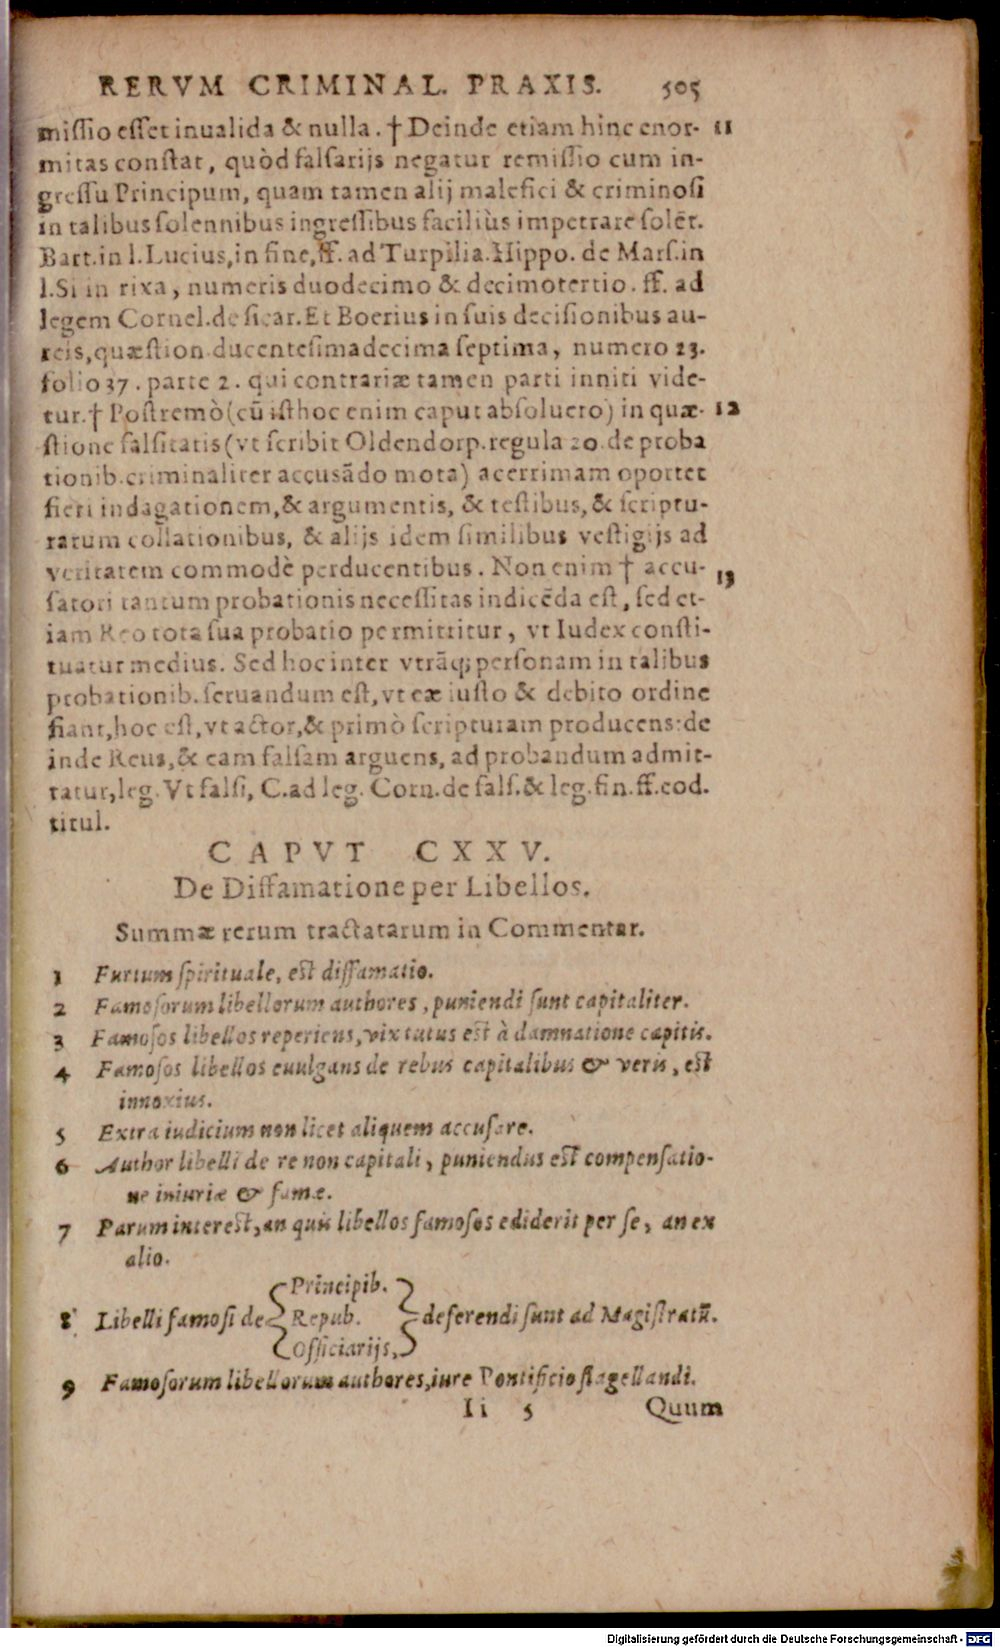 RERVM CRIMINAL. PRAXIS. 505
miſſio eſſet inualida & nulla. † Deinde etiam hinc enor- 11
mitas conſtat, quòd falſarijs negatur remiſſio cum in-
greſſu Principum, quam tamen alij malefici & criminoſi
in talibus ſolennibus ingreſſibus faciliùs impetrare ſolēt.
Bart. in l. Lucius, in fine, ff. ad Turpilia. Hippo. de Marſ. in
l. Si in rixa, numeris duodecimo & decimotertio. ff. ad
legem Cornel. de ſicar. Et Boerius in ſuis deciſionibus au-
reis, quæſtion. ducenteſimadecima ſeptima, numero 23.
folio 37. parte 2. qui contrariæ tamen parti inniti vide-
tur. † Poſtremò (cū iſthoc enim caput abſoluero) in quæ- 12
ſtione falſitatis (vt ſcribit Oldendorp. regula 20. de proba
tionib. criminaliter accuſādo mota) acerrimam oportet
fieri indagationem, & argumentis, & teſtibus, & ſcriptu-
rarum collationibus, & alijs idem ſimilibus veſtigijs ad
veritatem commodè perducentibus. Non enim † accu- 13
ſatori tantum probationis neceſſitas indicēda eſt, ſed et-
iam Reo tota ſua probatio permittitur, vt Iudex conſti-
tuatur medius. Sed hoc inter vtrāq; perſonam in talibus
probationib. ſeruandum eſt, vt eæ iuſto & debito ordine
fiant, hoc eſt, vt actor, & primò ſcripturam producens: de
inde Reus, & eam falſam arguens, ad probandum admit-
tatur, leg. Vt falſi, C. ad leg. Corn. de falſ. & leg. fin. ff. eod.
titul.
CAPVT CXXV.
De Diffamatione per Libellos.
Summæ rerum tractatarum in Commentar.
1 Furtum ſpirituale, eſt diffamatio.
2 Famoſorum libellorum authores, puniendi ſunt capitaliter.
3 Famoſos libellos reperiens, vix tutus eſt à damnatione capitis.
4 Famoſos libellos euulgans de rebus capitalibus & veris, eſt
innoxius.
5 Extra iudicium non licet aliquem accuſare.
6 Author libelli de re non capitali, puniendus eſt compenſatio-
ne iniuriæ & famæ.
7 Parum intereſt, an quis libellos famoſos ediderit per ſe, an ex
alio.
8 Libelli famoſi de { Principib. Repub. Officiarijs, } deferendi ſunt ad Magiſtratū.
9 Famoſorum libellorum authores, iure Pontificio flagellandi.
Ii 5 Quum
Digitalisierung gefördert durch die Deutsche Forschungsgemeinschaft - DFG